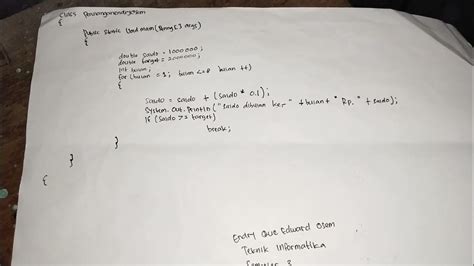 class PerulanganendryOsom
{
Public Static Void main (String [] args)
{
double saldo = 1000000;
double target = 2000000;
int bulan;
for (bulan = 1; bulan <=8 bulan ++)
{
saldo = saldo + (saldo * 0.1);
System.out.println ("saldo dibulan ke-" + bulan + " Rp. " + saldo);
if (saldo >= target)
break;
}
}
{
Endry Que Edward Osom
Teknik Informatika
Semester 3